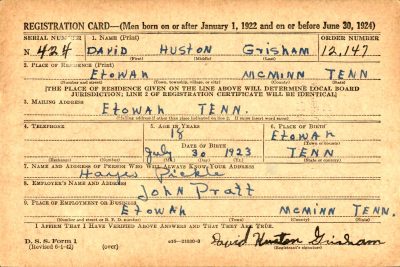 REGISTRATION CARD—(Men born on or after January 1, 1922 and on or before June 30, 1924)
SERIAL NUMBER 1. NAME (Print) ORDER NUMBER
N 424 DAVID HUSTON GRISHAM 12,147
(First) (Middle) (Last)
2. PLACE OF RESIDENCE (Print)
ETOWAH MCMINN TENN
(Number and street) (Town, township, village, or city) (County) (State)
[THE PLACE OF RESIDENCE GIVEN ON THE LINE ABOVE WILL DETERMINE LOCAL BOARD
JURISDICTION; LINE 2 OF REGISTRATION CERTIFICATE WILL BE IDENTICAL]
3. MAILING ADDRESS
ETOWAH TENN.
[Mailing address if other than place indicated on line 2. If same insert word same]
4. TELEPHONE 5. AGE IN YEARS 6. PLACE OF BIRTH
18 ETOWAH
DATE OF BIRTH (Town or county)
July 30 1923 TENN
(Exchange) (Number) (Mo.) (Day) (Yr.) (State or country)
7. NAME AND ADDRESS OF PERSON WHO WILL ALWAYS KNOW YOUR ADDRESS
Hayes Pickle
8. EMPLOYER'S NAME AND ADDRESS
John Pratt
9. PLACE OF EMPLOYMENT OR BUSINESS
ETOWAH MCMINN TENN.
(Number and street or R. F. D. number) (Town) (County) (State)
I AFFIRM THAT I HAVE VERIFIED ABOVE ANSWERS AND THAT THEY ARE TRUE.
D. S. S. Form 1
(Revised 6-1-42) (over) David Huston Grisham
(Registrant's signature)